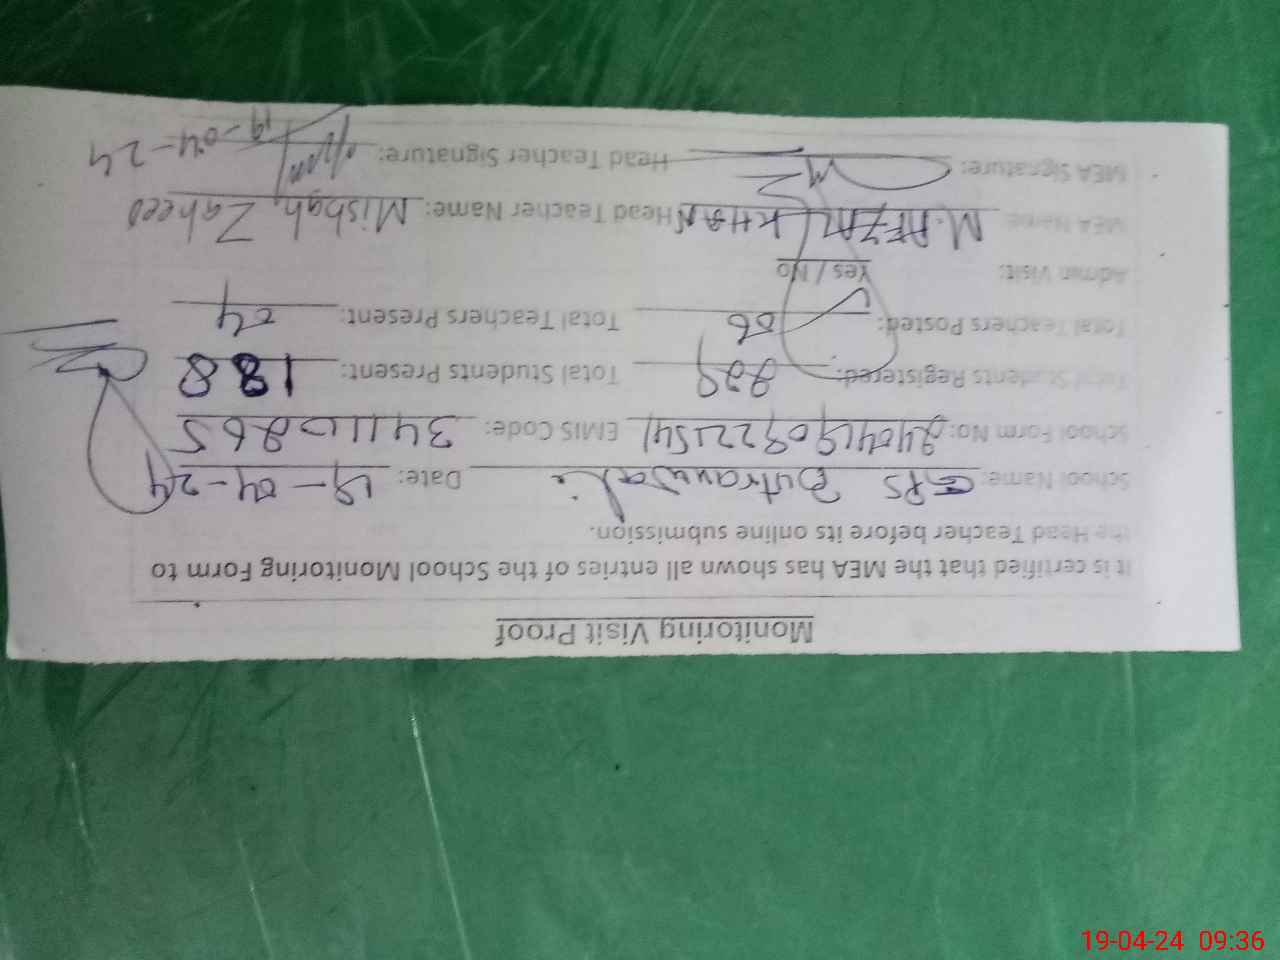 Monitoring Visit Proof
It is certified that the MEA has shown all entries of the School Monitoring Form to
the Head Teacher before its online submission.
School Name: GPS Butranwali Date: 19-04-24
School Form No: EMIS Code: 34110265
Total Students Registered: 229 Total Students Present: 188
Total Teachers Posted: 06 Total Teachers Present: 04
Admin Visit: Yes / No
MEA Name: M. AFZAL KHAN Head Teacher Name: Misbah Zaheed
MEA Signature: Head Teacher Signature: 19-04-24
19-04-24 09:36